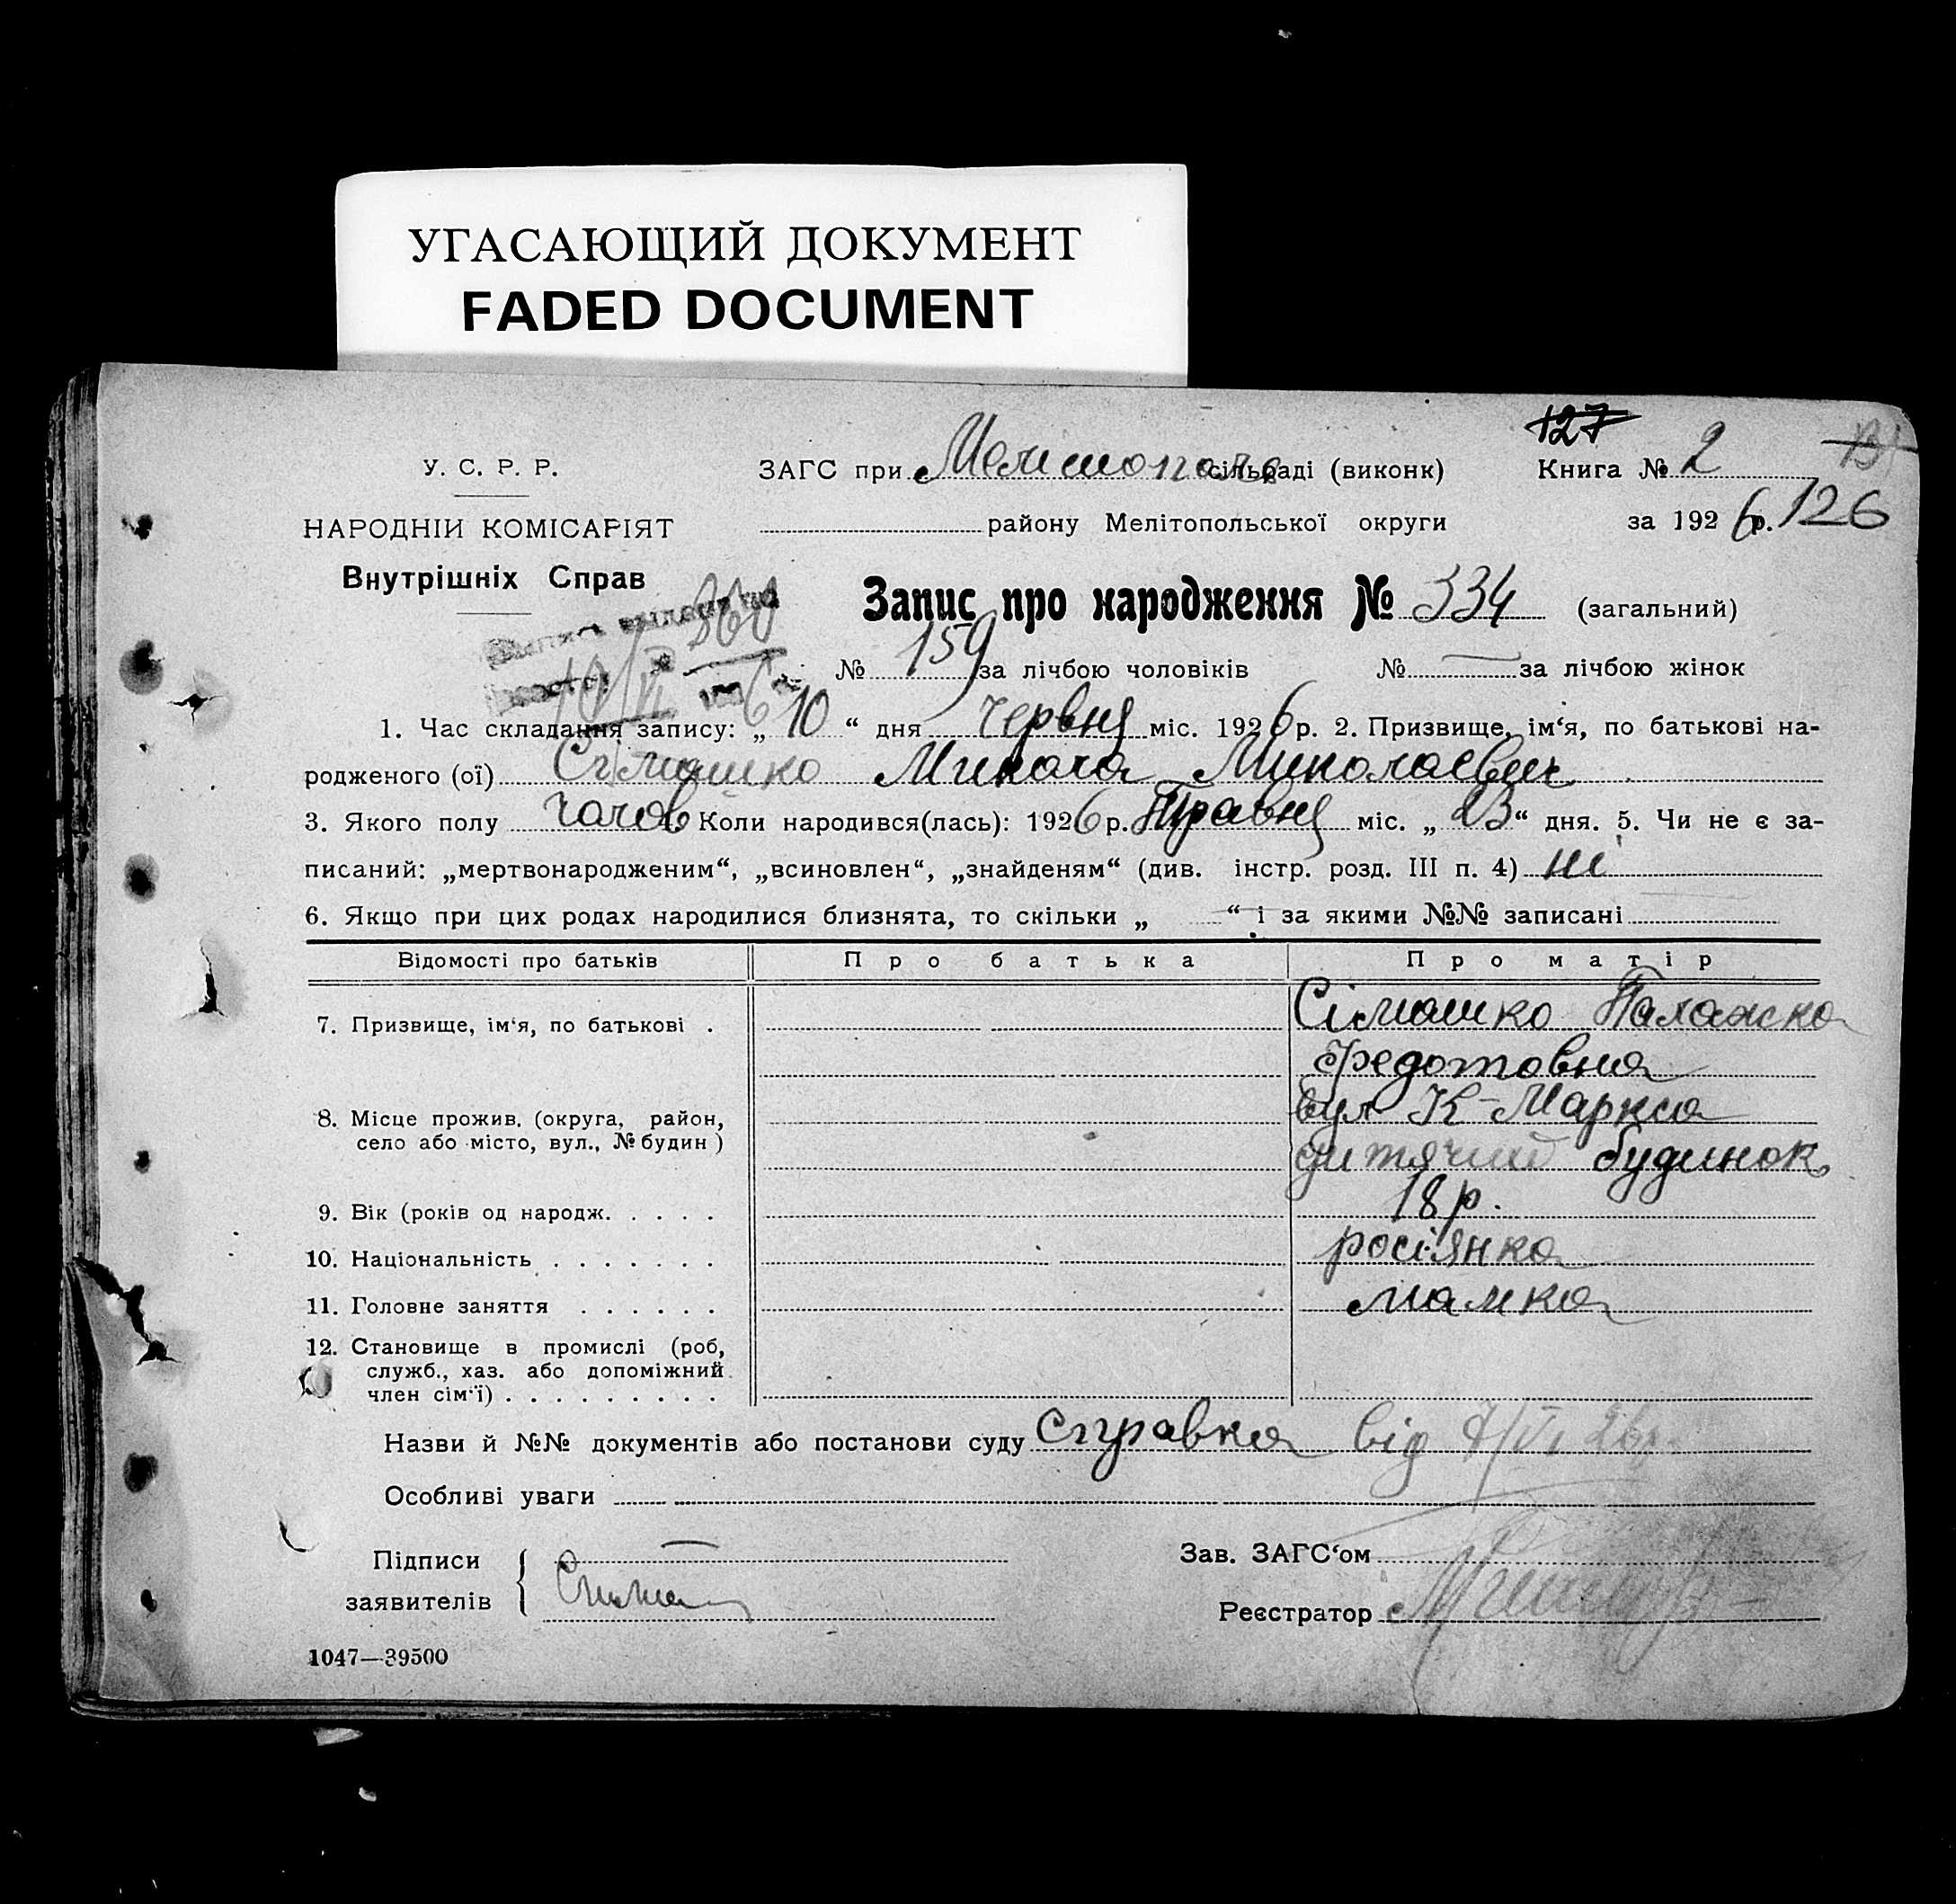 УГАСАЮЩИЙ ДОКУМЕНТ
FADED DOCUMENT
127
У. С. Р. Р.
ЗАГС при Мелітополь сільраді (виконк)
Книга № 2
НАРОДНІЙ КОМІСАРІЯТ
району Мелітопольської округи
за 1926 р. 126
Внутрішніх Справ
Запис про народження № 334 (загальний)
№ 159 за лічбою чоловіків № — за лічбою жінок
1. Час складання запису: „ 10 “ дня Червня міс. 1926 р. 2. Призвище, ім‘я, по батькові на-
родженого (ої) Сімашко Микола Миколаєвич
3. Якого полу чолов 4. Коли народився(лась): 1926 р. Травня міс. „ 23 “ дня. 5. Чи не є за-
писаний: „мертвонародженим“, „всиновлен“, „знайденям“ (див. інстр. розд. III п. 4) ні
6. Якщо при цих родах народилися близнята, то скільки „ — “ і за якими №№ записані
Відомості про батьків
Про батька
Про матір
7. Призвище, ім‘я, по батькові .
Сімашко Палажка
Федотовна
8. Місце прожив. (округа, район,
село або місто, вул., № будин )
вул К-Маркса
дитячий будинок
9. Вік (років од народж. . . . .
18 р.
10. Національність . . . . . . .
росіянка
11. Головне заняття . . . . . .
мамка
12. Становище в промислі (роб,
служб., хаз. або допоміжний
член сім‘ї) . . . . . . . . .
Назви й №№ документів або постанови суду Справка від 7/VI 26р.
Особливі уваги
Підписи
заявителів
Зав. ЗАГС‘ом
Реєстратор
1047—39500